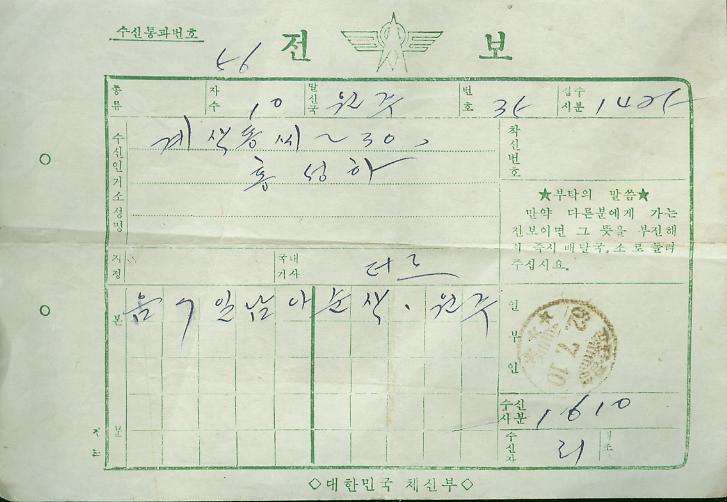 수신통과번호
46
전 보
종류
자수 10
발신국 원주
번호
접수시분
수신인거소성명
계색동씨 ~ 30,
홍성하
착신번호
★부탁의 말씀★
만약 다른분에게 가는
전보이면 그 뜻을 부전해
즉시 배달국, 소로 돌려
주십시요.
지정
국내기사
본문
음 7일남아순색. 원주
일부인
82. 7. 10
수신시분 1610
수신자 리
◇대한민국 체신부◇